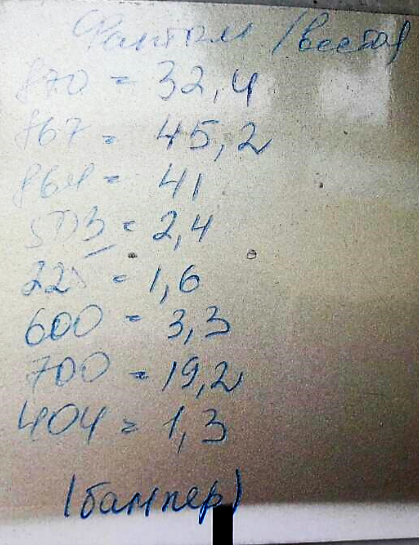 Фантом (веста)
870 = 32,4
867 = 45,2
864 = 41
503 = 2,4
225 = 1,6
600 = 3,3
700 = 19,2
404 = 1,3
(бампер)